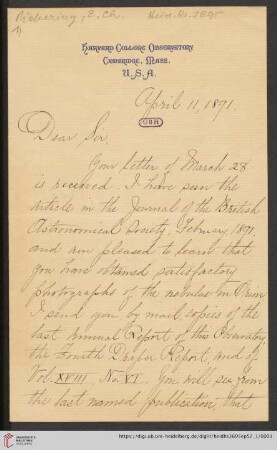 Pickering, E. Ch.
Harvard College Observatory,
Cambridge, Mass.
U.S.A.
April 11, 1891.
UBH
Dear Sir,
Your letter of March 28
is received. I have seen the
article in the Journal of the British
Astronomical Society, February, 1891,
and am pleased to learn that
you have obtained satisfactory
photographs of the nebulae in Orion.
I send you by mail copies of the
last Annual Report of this Observatory
the Fourth Draper Report, and of
Vol. XVIII, No. VI. You will see from
the last named publication, that